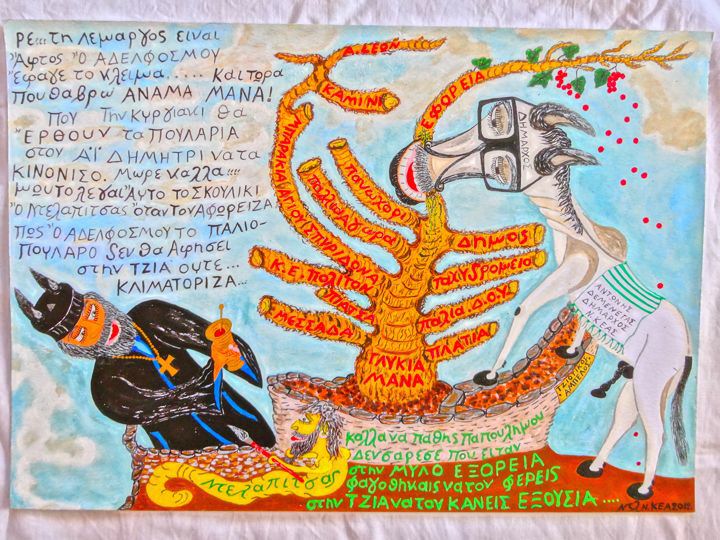 ΡΕ... τη ΛΕΜαργος ειναι
Άφτος Ό ΑΔΕΛΦΟΣΜΟΥ
Έφαγε το κλειμα..... Και τωρα
που θα βρω ΑΝΑΜΑ ΜΑΝΑ!
που την Κυργιακι θα
ΈΡΘΟΥΝ τα ΠΟΥΛΑΡΙΑ
στον ΑΪ ΔΗΜΗΤΡΙ να τα
ΚΙΝΟΝΙΣΟ. Μωρε καλλα....
μου το λεγαι Άυτο το ΣΚΟΥΛΙΚΙ
Ό Ντελαπιτσας όταν τον ΑφωρειΖα
πως Ό ΑΔΕΛΦΟΣΜΟΥ το ΠΑΛΙΟ-
ΠΟΥΛΑΡΟ δεν θα Αφησει
στην ΤΖΙΑ ουτε...
ΚΛΙΜΑΤΟΡΙΖΑ...
Α. LEON
ΚΑΜΙΝΙ
ΕΦΟΡΕΙΑ
ΔΗΜΑΡΧΟΣ
πανωχορι
παλλιαγορα
ΑΓΙΟΥ ΣΠΥΡΙΔΩΝΑ
Κ.Ε. ΠΟΛΙΤΟΝ
ΠΙΑΤΣΑ
ΜΕΣΣΑΔΑ
Δημος
ταχυδρομειο
παλια Δ.Ο.Υ.
ΠΛΑΤΙΑ
ΓΛΥΚΙΑ
ΜΑΝΑ
ΑΝΤΟΝΗΣ
ΔΕΜΕΝΕΓΑΣ
ΔΗΜΑΡΧΟΣ
Ν. ΚΕΑΣ
ΑΜΠΕΛΟΣ
Ντελαπιτσας
Καλλα να παθης παπουλημου
Δεν σαρεσε που ειταν
στην ΜΥΛΟ ΕΞΟΡΕΙΑ
φαγοθηκαις να τον φερεις
στην ΤΖΙΑ να τον ΚΑΝΕΙΣ ΕΞΟΥΣΙΑ ....
Ν. ΚΕΑ 2012